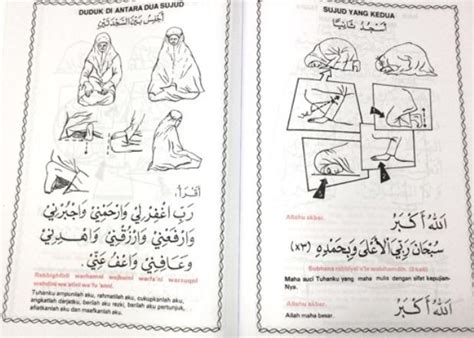 DUDUK DI ANTARA DUA SUJUD
أَجْلِسُ بَيْنَ السَّجْدَتَيْنِ
أَقْرَأُ :
رَبِّ اغْفِرْ لِيْ وَارْحَمْنِيْ وَاجْبُرْنِيْ
وَارْفَعْنِيْ وَارْزُقْنِيْ وَاهْدِنِيْ
وَعَافِنِيْ وَاعْفُ عَنِّيْ.
Rabbighfirlii warhamnii wajburnii warfa'nii warzuqnii
wahdinii wa'afinii wa'fu 'annii.
Tuhanku ampunilah aku, rahmatilah aku, cukupkanlah aku,
angkatlah darjatku, berilah aku rezki, berilah aku pertunjuk,
afiatkanlah aku dan maafkanlah aku.
SUJUD YANG KEDUA
أَسْجُدُ ثَانِيًا
اَللّٰهُ أَكْبَرُ
Allahu akbar.
سُبْحَانَ رَبِّيَ الْأَعْلَى وَبِحَمْدِهِ (×٣)
Subhana rabbiyal a'la wabihamdih. (3 kali)
Maha suci Tuhanku yang maha mulia dengan sifat kepujian-
Nya.
اَللّٰهُ أَكْبَرُ
Allahu akbar.
Allah maha besar.